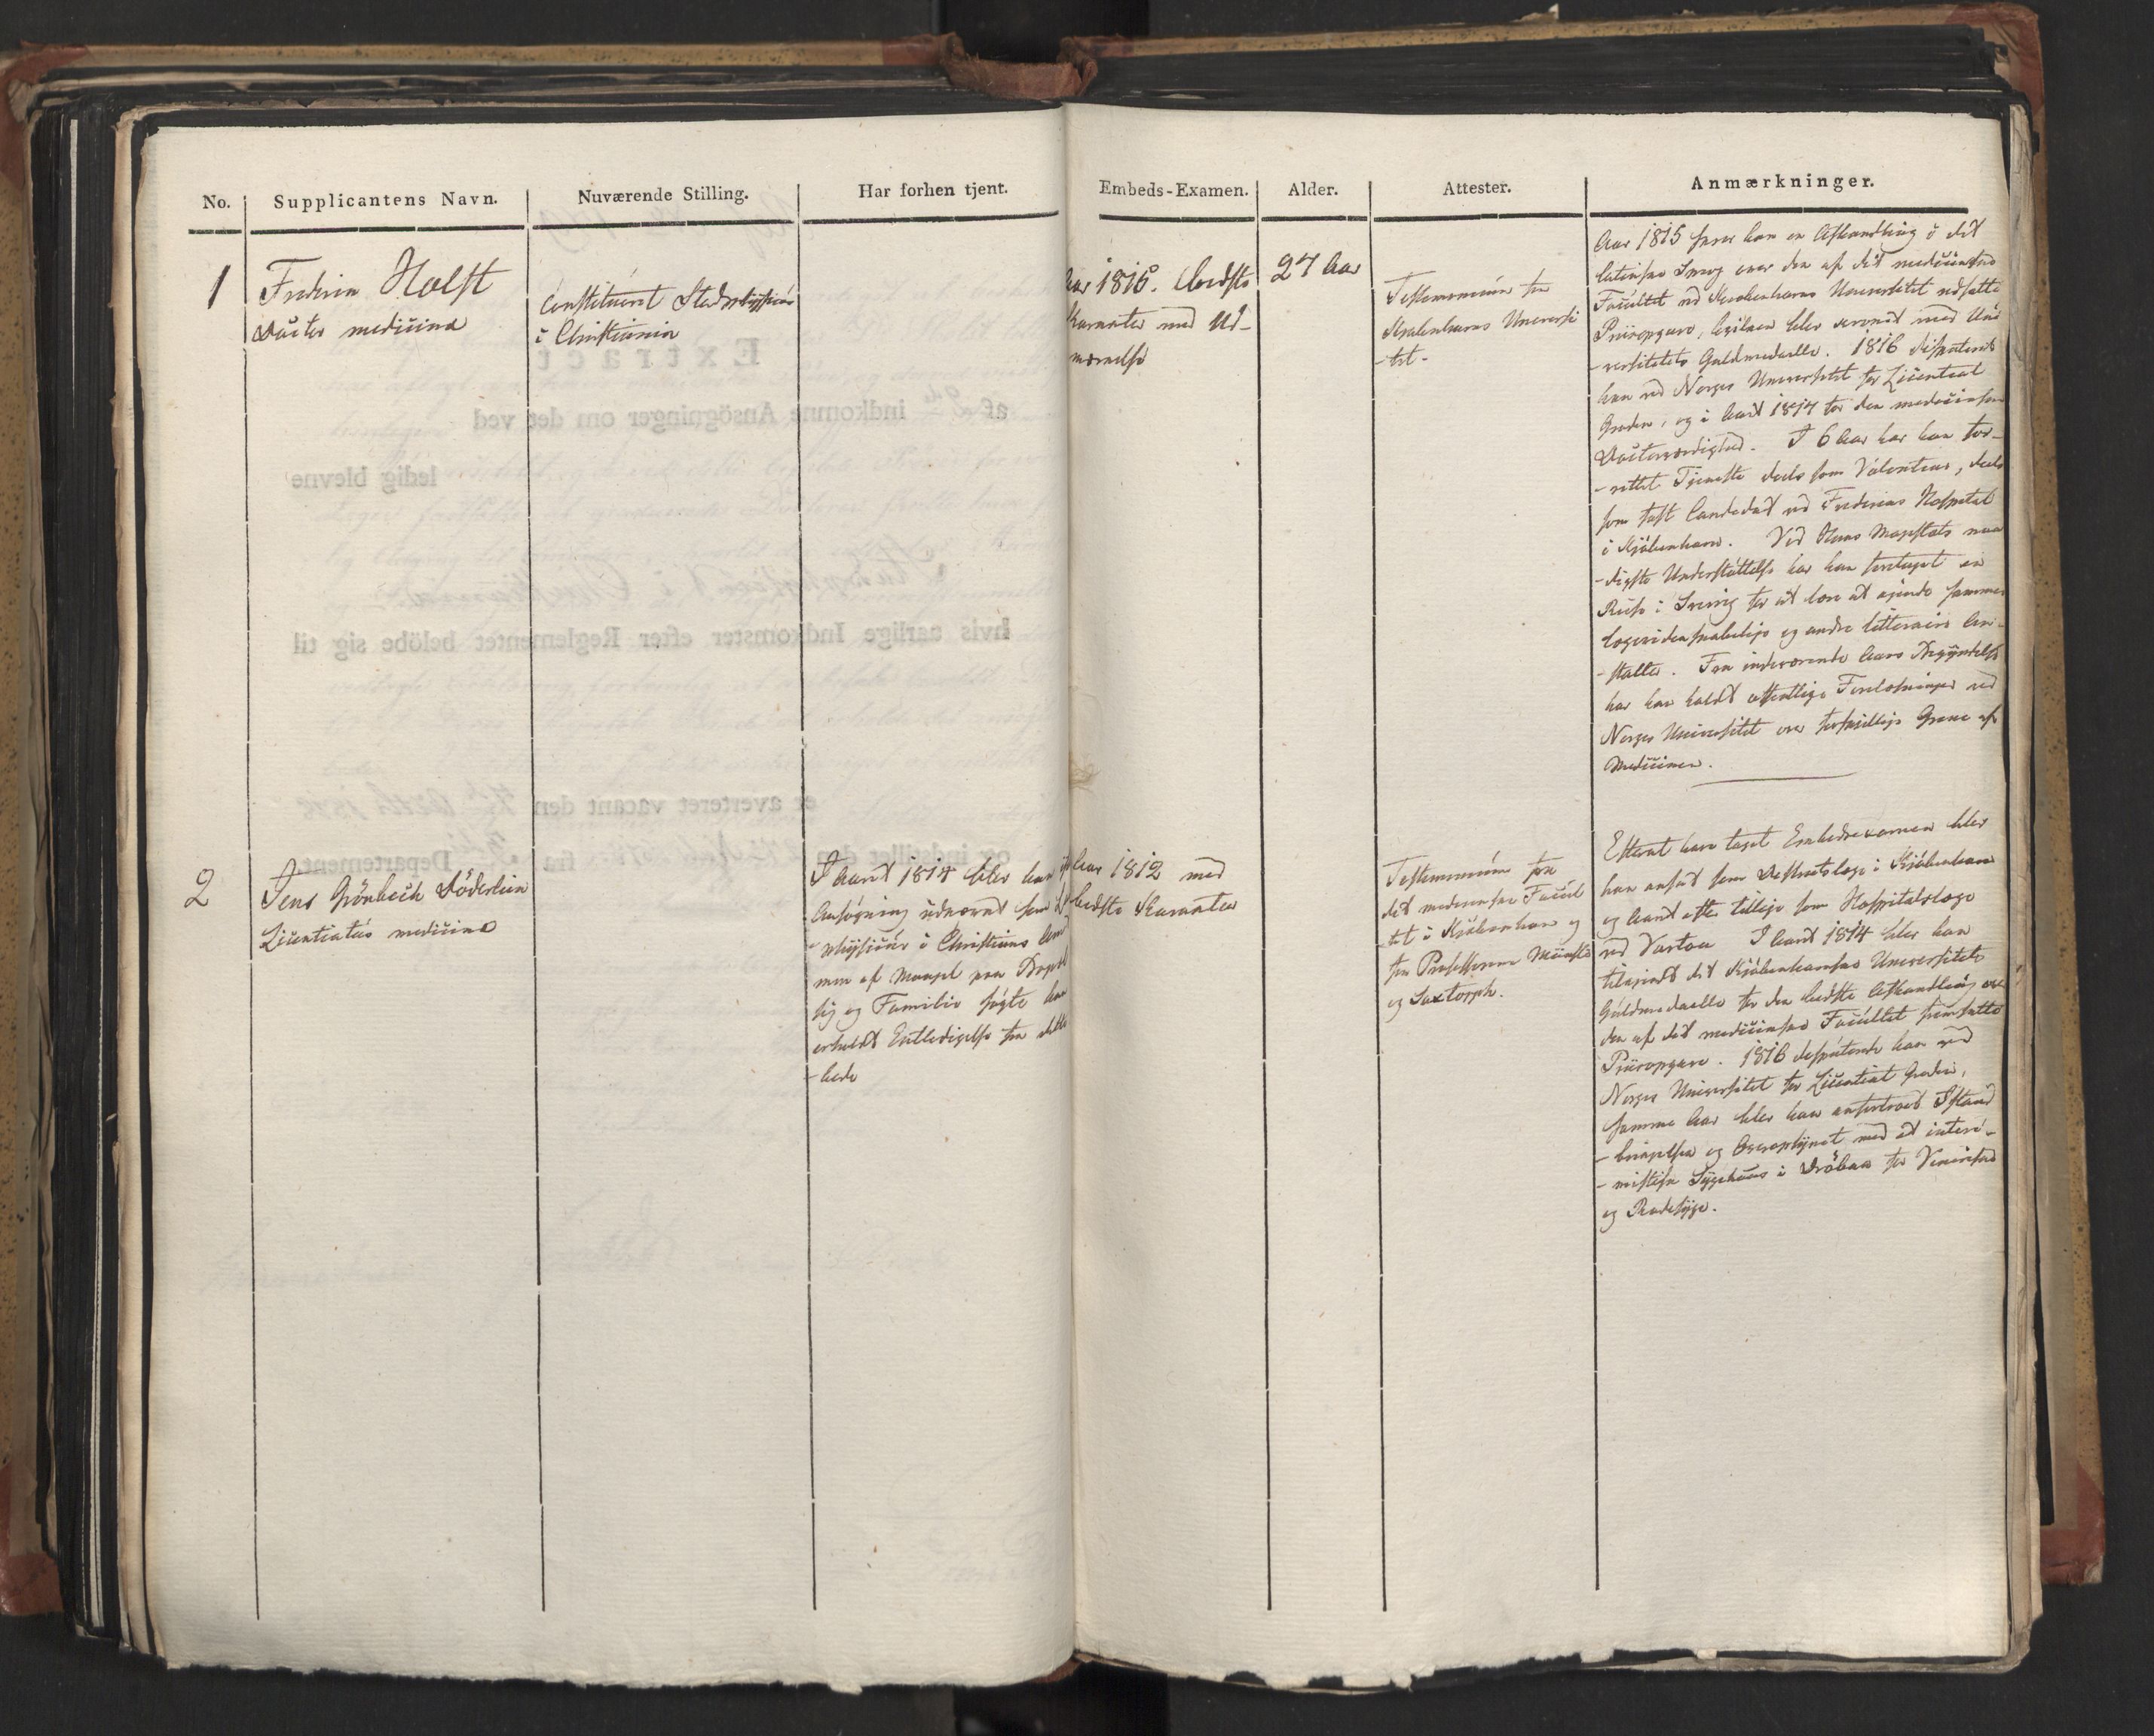 No.
Supplicantens Navn.
Nuværende Stilling.
Har forhen tjent.
Embeds-Examen.
Alder.
Attester.
Anmærkninger.
1
Frederic Holst
Doctor medicinæ
Constitueret Stadsphysicus
i Christiania
Aar 1815. Bedste
Karacter med Ud-
mærkelse
27 Aar
Testemonium fra
Kjøbenhavns Universi
-tet.
Aar 1815 skrev han en Afhandling i det
latinske Sprog over den af det medicinske
Facultet ved Kjøbenhavns Universitet udsatte
Priisopgave, hvilken blev kronet med Uni
-versitetets Guldmedaille. 1816 disputerede
han ved Norges Universitet for Licentiat
Graden, og i Aaret 1817 for den medicinske
Doctorværdighed. I 6 Aar har han for-
-rettet Tjeneste deels som Volonteur, deels
som fast Candidat ved Frederiks Hospital
i Kjøbenhavn. Ved Hans Majestæts naa
-digste Understøttelse har han foretaget en
Reise i Sverrig for at lære at kjende sammes
lægevidenskabelige og andre litteraire An-
-stalter. Fra indeværende Aars Begyndelse
har han holdt offentlige Forelæsninger ved
Norges Universitet over forskjellige Grene af
Medicinen.
2
Jens Grönbech Döderlein
Licentiatus medicinæ
I Aaret 1814 blev han
Ansøgning udnævnt som
-physicus i Christians Amt
men af Mangel paa
sig og Familie søgte han
erholdt Entledigelse fra dette
-bede
Aar 1812 med
bedste Karacter
Testemonium fra
det medicinske Facul
-tet i Kjøbenhavn og
fra Professorerne
og Saxtorph.
Efterat have taget Embedsexamen blev
han ansat som Districtslæge i Kjøbenhavn
og Aaret efter tillige som Hospitalslæge
ved Vartou I Aaret 1814 blev han
tilkjendt det Kjøbenhavnske Universitets
Guldmedaille for den bedste Afhandling over
den af det medicinske Facultet fremsatte
Priisopgave. 1816 disputerede han ved
Norges Universitet for Licentiat Graden,
samme Aar blev han anfortroet Istand
-bringelsen og Overopsynet med et interi-
-mistisk Sygehuus i Dröbak for Veneriske
og Radesyge.